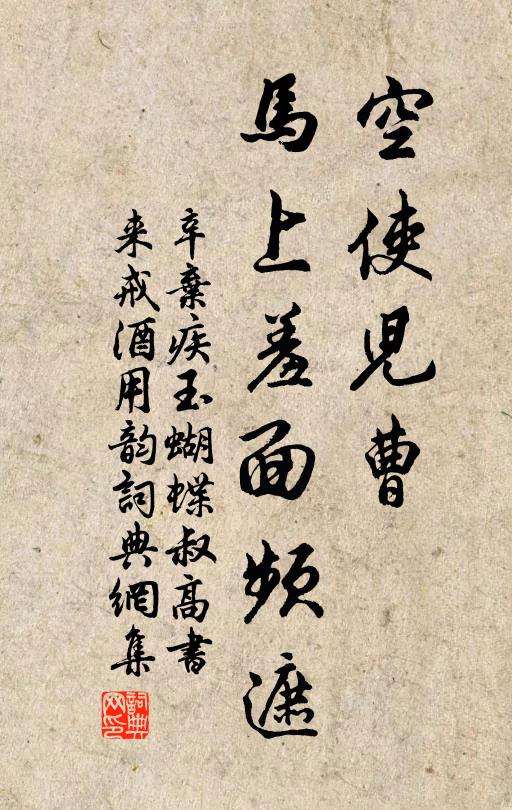 空使児曹
馬上羞面頻遮
辛棄疾玉蝴蝶叔高書
来戒酒用韵詞典網集
詞典网印